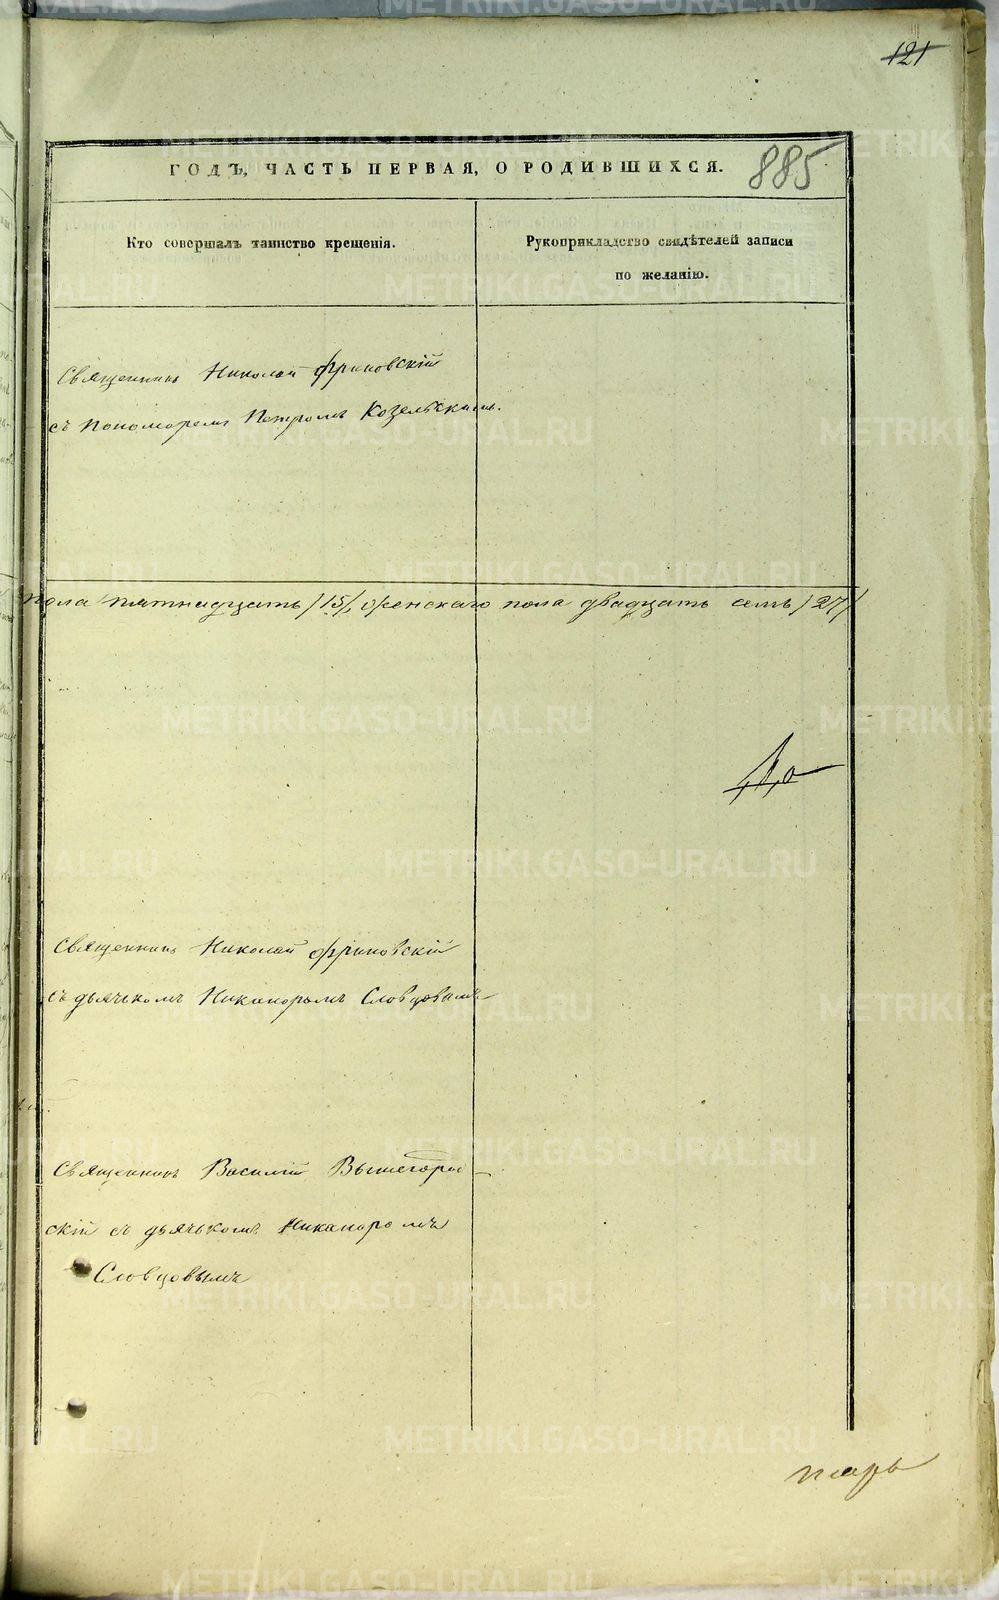 121
885
ГОДЪ, ЧАСТЬ ПЕРВАЯ, О РОДИВШИХСЯ.
Кто совершалъ таинство крещенія.
Рукоприкладство свидѣтелей записи
по желанію.
Священникъ Николай Фриновскій
съ пономоремъ Петромъ Козельскимъ.
пола пятнадцать /15/, женскаго пола двадцать семь /27/
Священникъ Николай Фриновскій
съ дьячькомъ Никаноромъ Словцовымъ
Священникъ Василій Вышегород
скій съ дьячькомъ Никаноромъ
Словцовымъ
METRIKI.GASO-URAL.RU